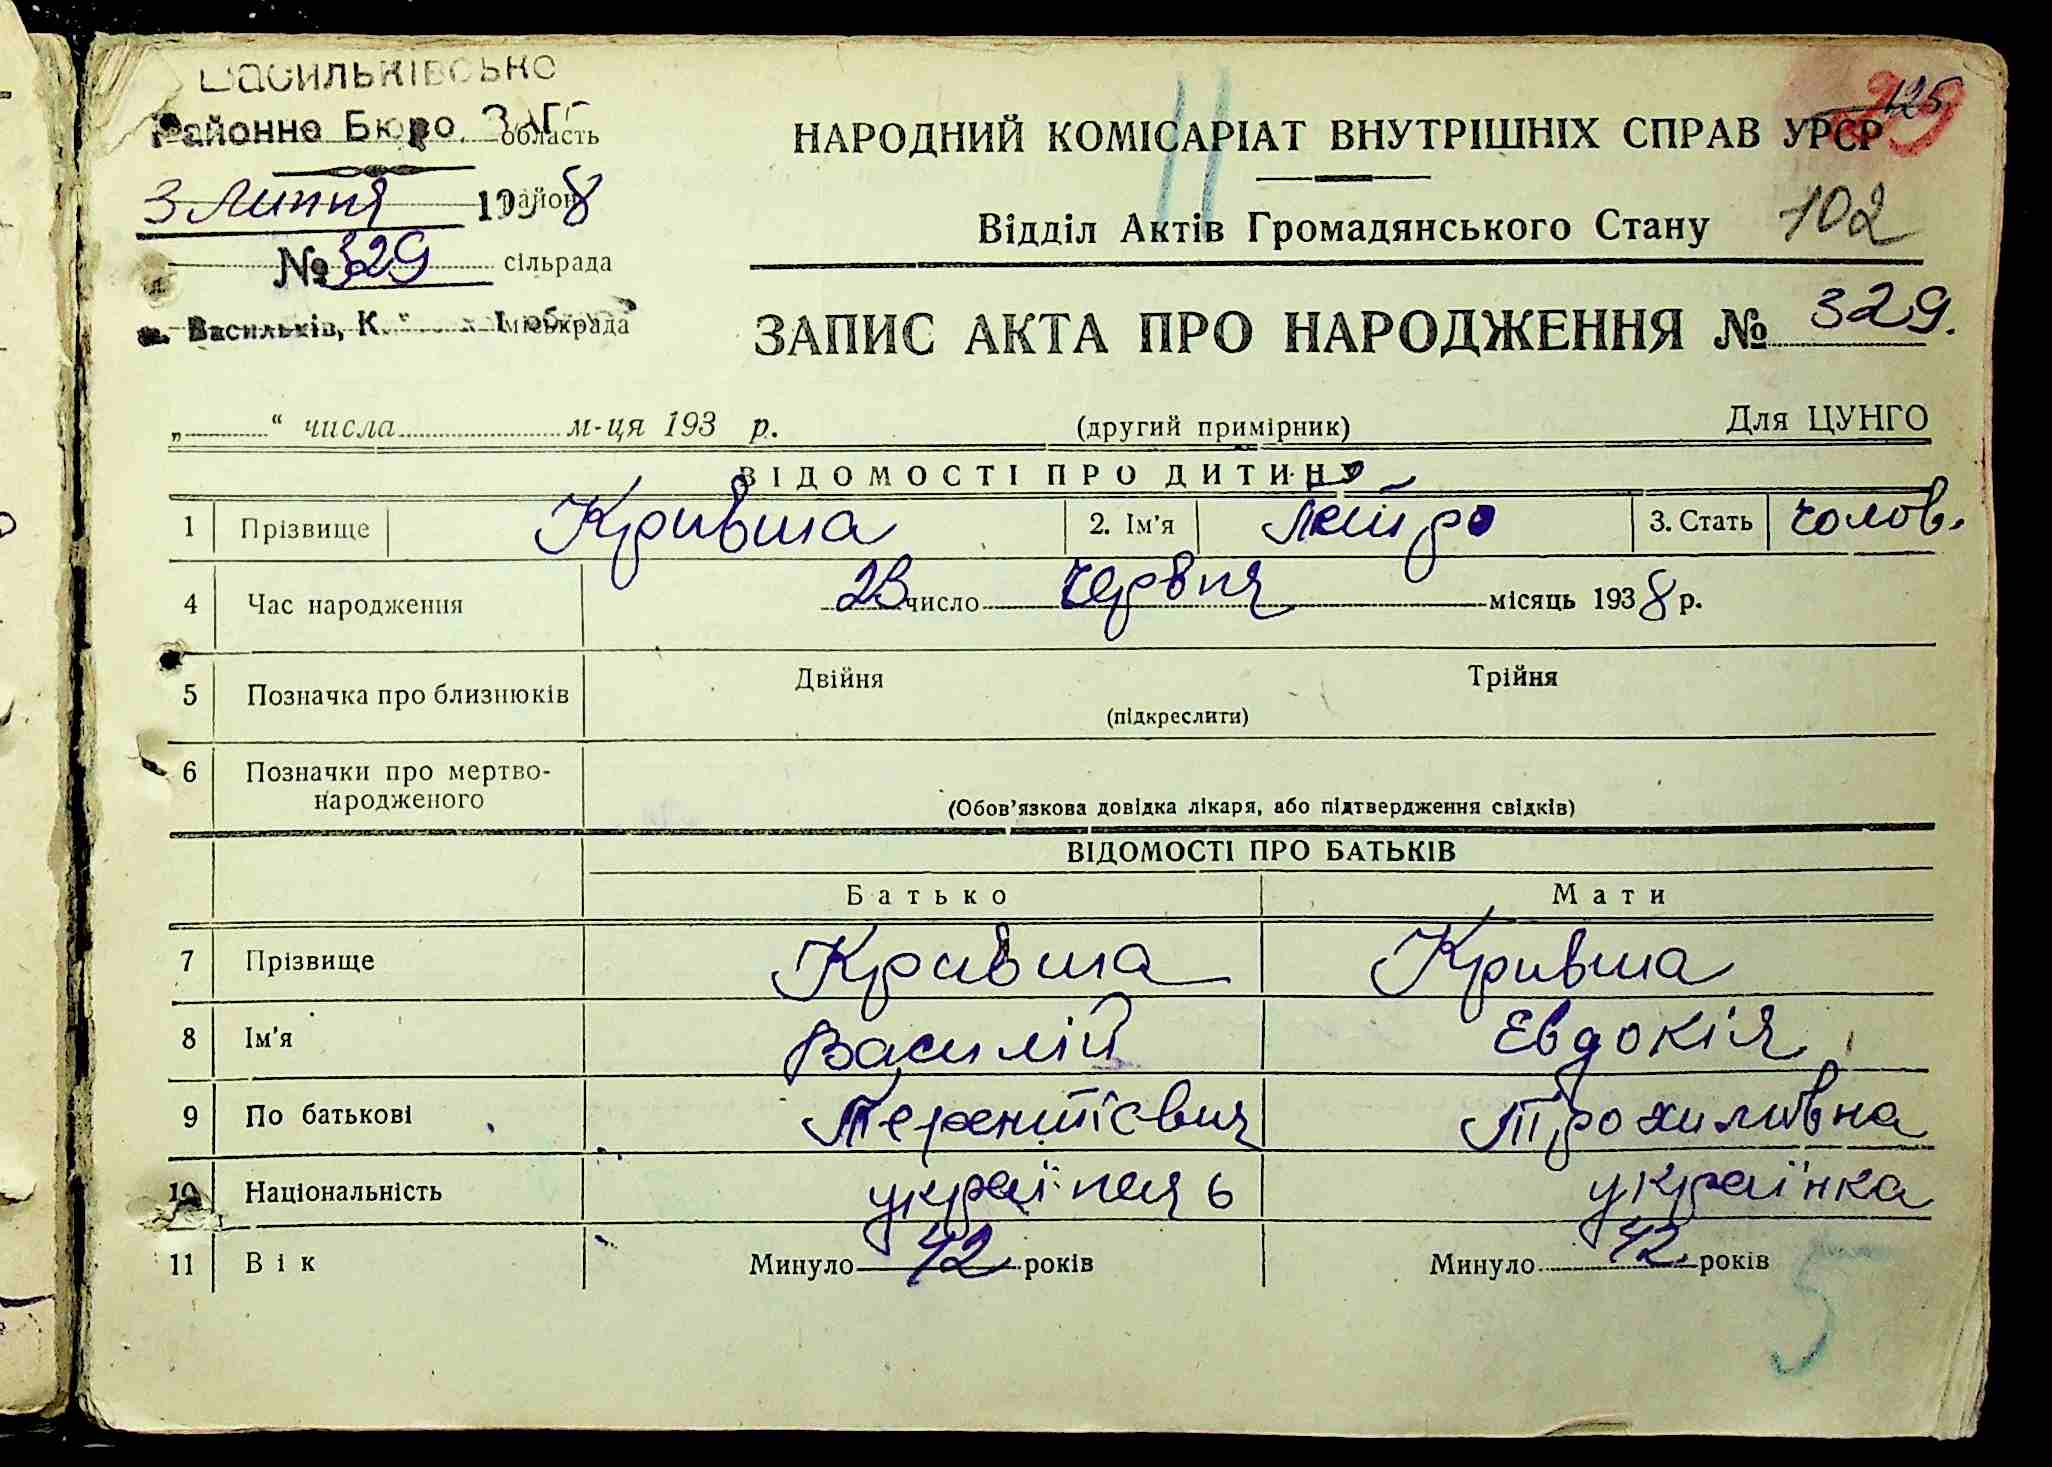 Васильківсько
Районне Бюро ЗАГС область
3 Липня 1938 район
№ 329 сільрада
м. Васильків, К. обл. міськрада
125
НАРОДНИЙ КОМІСАРІАТ ВНУТРІШНІХ СПРАВ УРСР
11
Відділ Актів Громадянського Стану
102
ЗАПИС АКТА ПРО НАРОДЖЕННЯ № 329.
„ “ числа м-ця 193 р. (другий примірник) Для ЦУНГО
ВІДОМОСТІ ПРО ДИТИНУ
1 Прізвище Кривша 2. Ім'я Пейтро 3. Стать чолов.
4 Час народження 23 число червня місяць 1938 р.
5 Позначка про близнюків Двійня Трійня
(підкреслити)
6 Позначки про мертво-
народженого
(Обов'язкова довідка лікаря, або підтвердження свідків)
ВІДОМОСТІ ПРО БАТЬКІВ
Батько Мати
7 Прізвище Кривша Кривша
8 Ім'я Василій Евдокія
9 По батькові Терентієвич Трохимівна
10 Національність українець українка
11 Вік Минуло 42 років Минуло 42 років
5